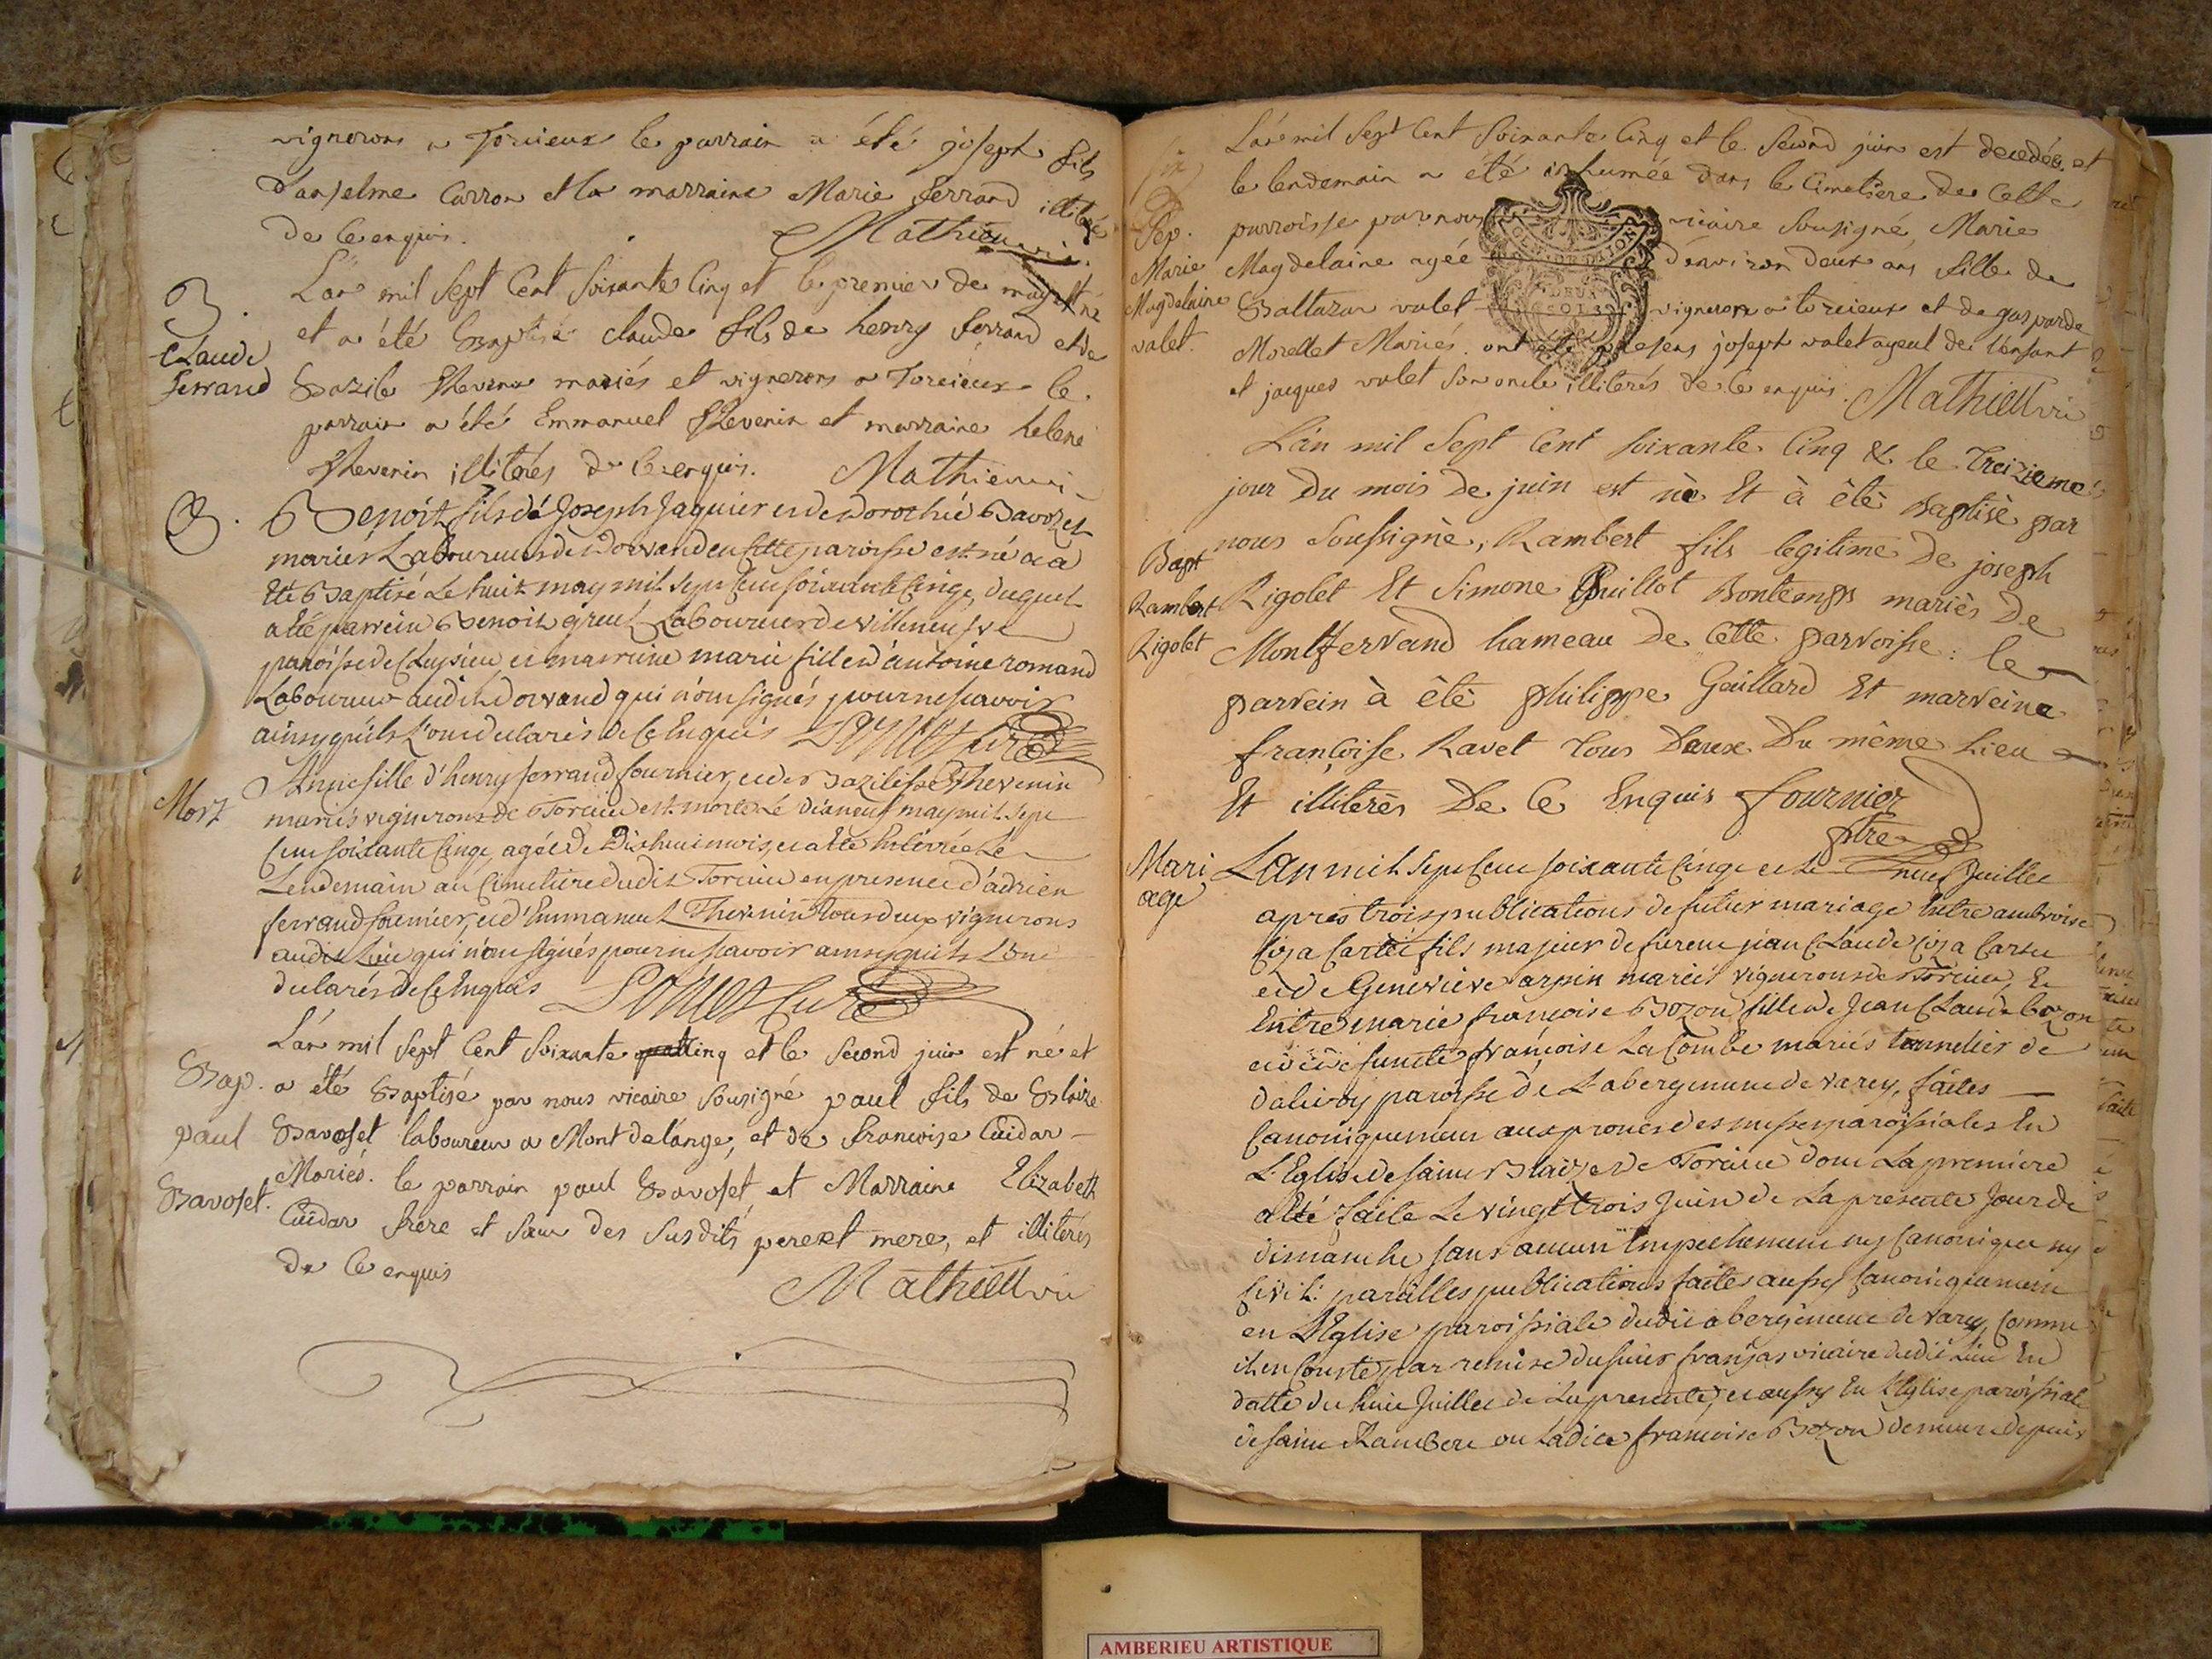 vignerons a Torcieux le parrain a été joseph fils
d'anselme Carron et la marraine Marie ferrand illiterés
de ce enquis. Mathieu vic.
L'an mil sept Cent soixante Cinq et le premier de may est né
et a été Baptisé claude fils de henry ferrand et de
Bazile thevenin mariés et vignerons a Torcieux le
parrain a été Emmanuel thevenin et marraine helene
thevenin illiterés de ce enquis. Mathieu vi
B.
Claude
ferrand
B.
Benoit fils de Joseph Jaquier et de Dorothée Bavozet
mariés Laboureurs de Dorvand en cette paroisse est né et a
été Baptisé Le huit may mil sept cent soixante Cinqe, duquel
a été parrein Benoit Laboureur de villeneufve
paroisse de et marreine marie fille d'antoine romand
Laboureur audit dorvand qui n'ont signés pour ne scavoir
ainsy qu'ils l'ont declarés de ce Enquis curé
Mort
Anne fille d'henry ferrand fournier, et de Bazilisse Thevenin
mariés vignerons de Torcieu est morte Le dixneuf may mil sept
Cent soixante Cinqe, agée de Dixhuit mois, et a été Enterrée Le
Lendemain au Cimetiere dudit Torcieu en presence d'adrien
ferrand fournier, et d'Emmanuel Thevenin tous deux vignerons
audit Lieu qui n'ont signés pour ne scavoir ainsy qu'ils L'ont
declarés de ce Enquis Curé
L'an mil sept Cent soixante cinq et le second juin est né et
a été Baptisé par nous vicaire sousigné paul fils de Blaise
Bavoset laboureur a Mont de lange, et de francoise Cuidar
Mariés. le parrain paul Bavoset et Marraine Elizabeth
Cuidar frere et soeur des susdits pere et mere, et illiterés
de ce enquis Mathieu vic
Bap.
paul
Bavoset.
L'an mil sept Cent soixante Cinq et le second juin est decedée et
le lendemain a été inhumée dans le Cimetiere de Cette
parroisse par nous vicaire sousigné Marie
Magdelaine agée d'environ deux ans fille de
Baltazar valet vigneron a torcieux et de gasparde
Morellet Mariés. ont été presens joseph valet ayeul de l'enfant
et jacques valet son oncle illiterés de ce enquis. Mathieu vic
six
Sep.
Marie
Magdelaine
valet.
DEUX
SOLS
L'an mil sept Cent soixante Cinq & le Treizieme
jour Du mois De juin est nè Et à êtè Baptisè par
nous Soussignè, Rambert fils legitime De joseph
Rigolet Et Simone Guillot Bontemps mariès De
Montferrand hameau De Cette parroisse: le
parrein à êtè philippe Gaillard Et marreine
françoise Ravet Tous Deux Du même Lieu
Et illiterès De Ce Enquis fournier
ptre
Bapt
Rambert
Rigolet
Mari
age
L'an mil sept Cent soixante Cinqe et Le neuf Juillet
apres trois publications de futur mariage Entre ambroise
fils majeur de furent jean Claude
et de Genevieve arpin mariés vignerons de Torcieu, Et
Entre marie françoise Bozon fille de Jean Claude bozon
et de defuncte françoise La Combe mariés tonnelier de
dalivoy paroisse de L'abergement de varey, faites
Canoniquement aux prones des messes paroissiales En
L'Eglise de saint Blaize de Torcieu dont La premiere
a été faite Le vingt trois Juin de La presente Jour de
dimanche sans aucun Empechement ny Canonique ny
Civil: pareilles publications faites aussy Canoniquement
en L'Eglise paroissiale dudit abergement de varey, comme
il en Conste par remise du sieur vicaire dudit Lieu En
datte du huit Juillet de La presente, et aussy En L'Eglise paroissiale
de saint Rambert ou Ladite francoise Bozon demeure depuis
AMBERIEU ARTISTIQUE